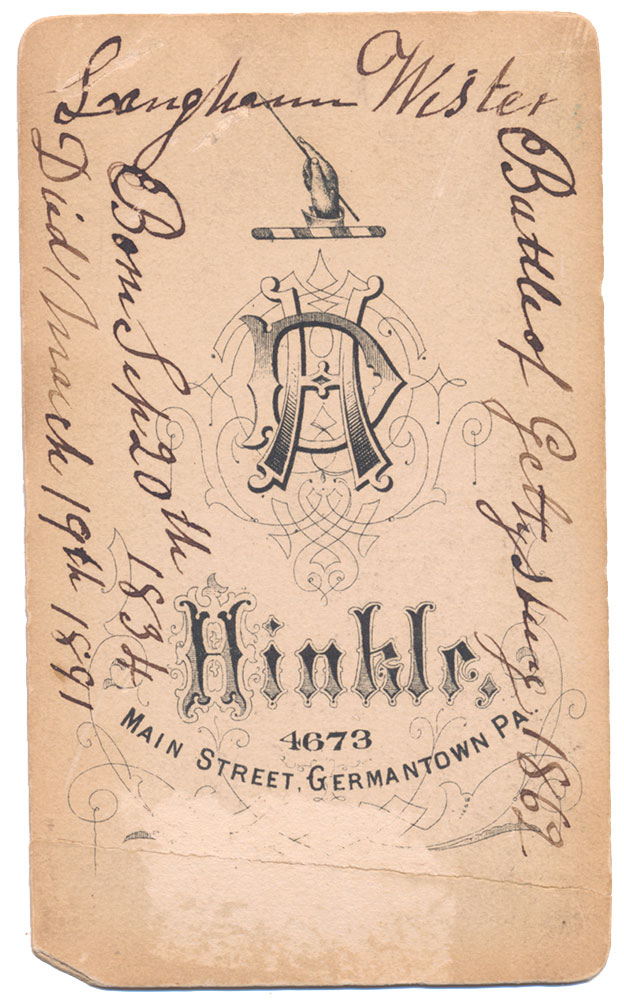 Langhorne Wister
Battle of Gettysburg. 1862
Born Sep 20th 1834
Died March 19th 1891
Hinkle,
4673
MAIN STREET, GERMANTOWN PA